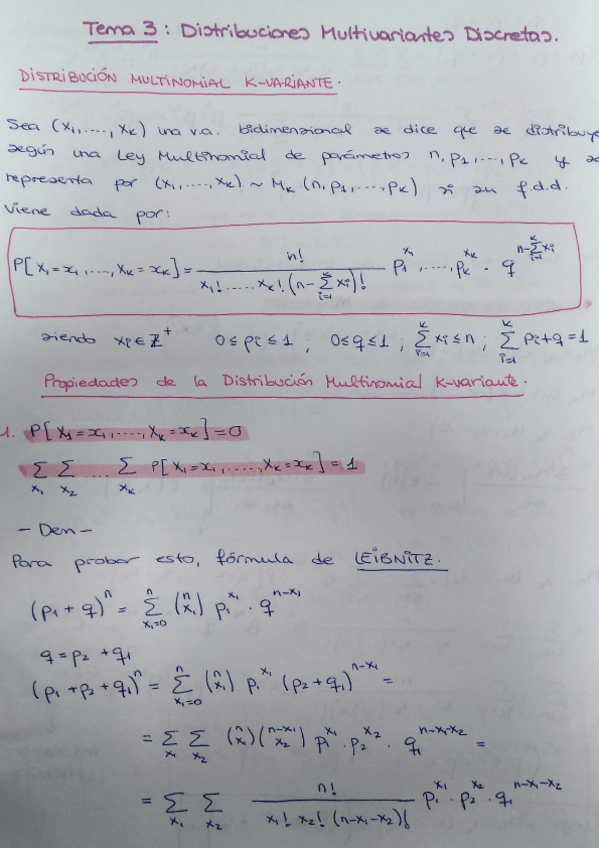 Tema 3: Distribuciones Multivariantes Discretas.
DISTRIBUCIÓN MULTINOMIAL K-VARIANTE.
Sea (x₁,....,xₖ) una v.a. bidimensional se dice que se distribuye
según una Ley Multinomial de parámetros n, p₁,..., pₖ y se
representa por (x₁,...,xₖ) ~ Mₖ (n, p₁,..., pₖ) si su f.d.d.
viene dada por:
P[X₁=x₁,....,Xₖ=xₖ] = n! / (x₁!.....xₖ! (n-∑ᵢ₌₁ᵏ xᵢ)!) p₁^x₁,....,pₖ^xₖ · q^(n-∑ᵢ₌₁ᵏ xᵢ)
siendo xᵢ∈Z⁺ 0≤pᵢ≤1 ; 0≤q≤1 ; ∑ᵢ₌₁ᵏ xᵢ≤n ; ∑ᵢ₌₁ᵏ pᵢ+q=1
Propiedades de la Distribución Multinomial K-variante.
1. P[X₁=x₁,....,Xₖ=xₖ]=0
∑x₁ ∑x₂ ... ∑xₖ P[X₁=x₁,....,Xₖ=xₖ]=1
- Den -
Para probar esto, fórmula de LEIBNITZ.
(p₁+q)^n = ∑_(x₁=0)^n (n x₁) p₁^x₁ · q^(n-x₁)
q=p₂+q₁
(p₁+p₂+q₁)^n = ∑_(x₁=0)^n (n x₁) p₁^x₁ (p₂+q₁)^(n-x₁) =
= ∑x₁ ∑x₂ (n x₁)(n-x₁ x₂) p₁^x₁ · p₂^x₂ · q₁^(n-x₁-x₂) =
= ∑x₁ ∑x₂ n! / (x₁! x₂! (n-x₁-x₂)!) p₁^x₁ · p₂^x₂ · q₁^(n-x₁-x₂)